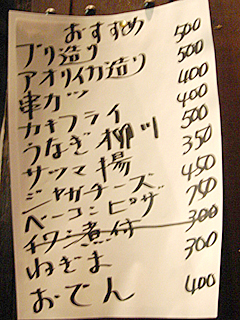 おすすめ
ブリ造り 500
アオリイカ造り 500
串カツ 400
カキフライ 400
うなぎ柳川 500
サツマ揚 350
ジャガチーズ 450
ベーコンピザ 750
イワシ煮付 300
ねぎま 300
おでん 400